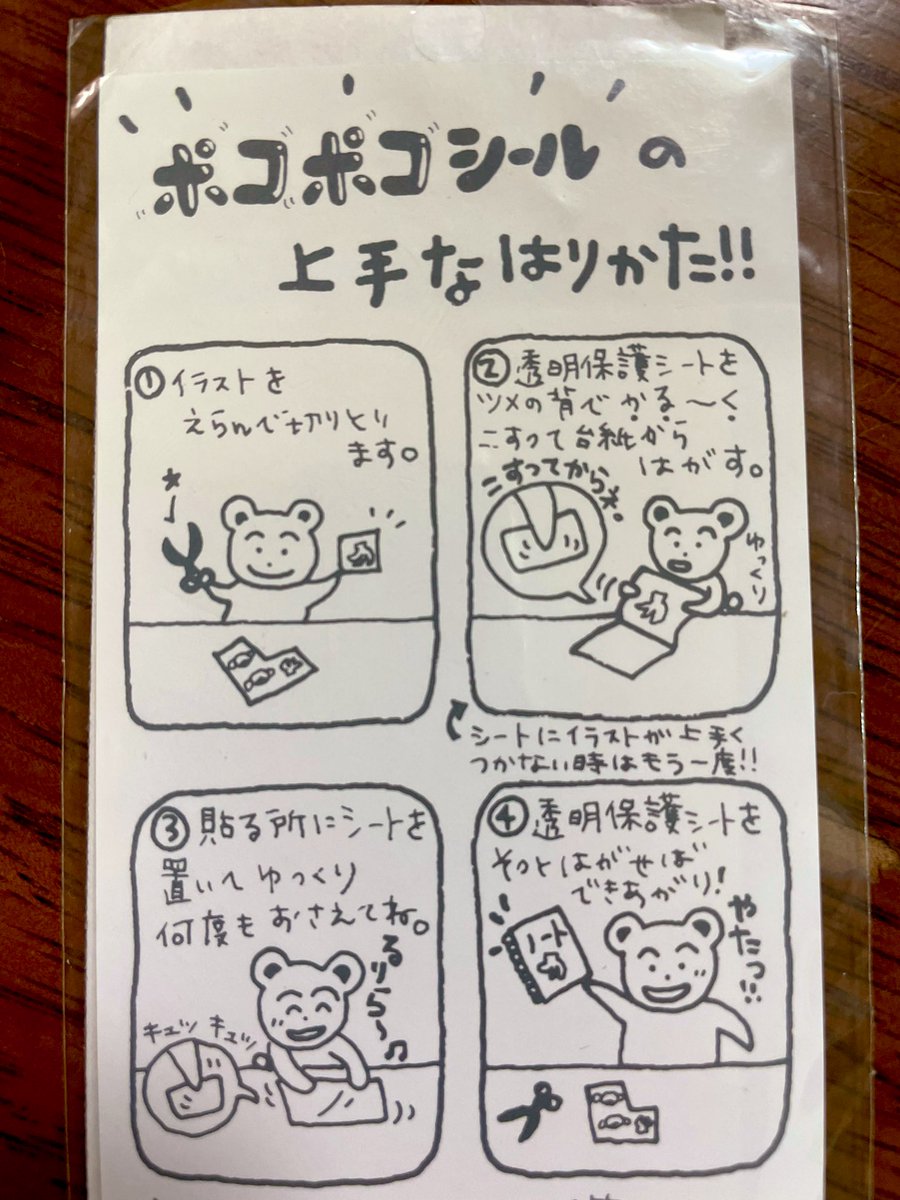 ボゴボゴシールの
上手なはりかた!!
①イラストを
えらんで切りとり
ます。
②透明保護シートを
ツメの背でかる〜く
こすって台紙から
はがす。
こすってからネ。
ゆっくり
シートにイラストが上手く
つかない時はもう一度!!
③貼る所にシートを
置いてゆっくり
何度もおさえてね。
るりら〜♫
キュッ キュッ
④透明保護シートを
そっとはがせば
できあがり!
やたっ!!
ノート